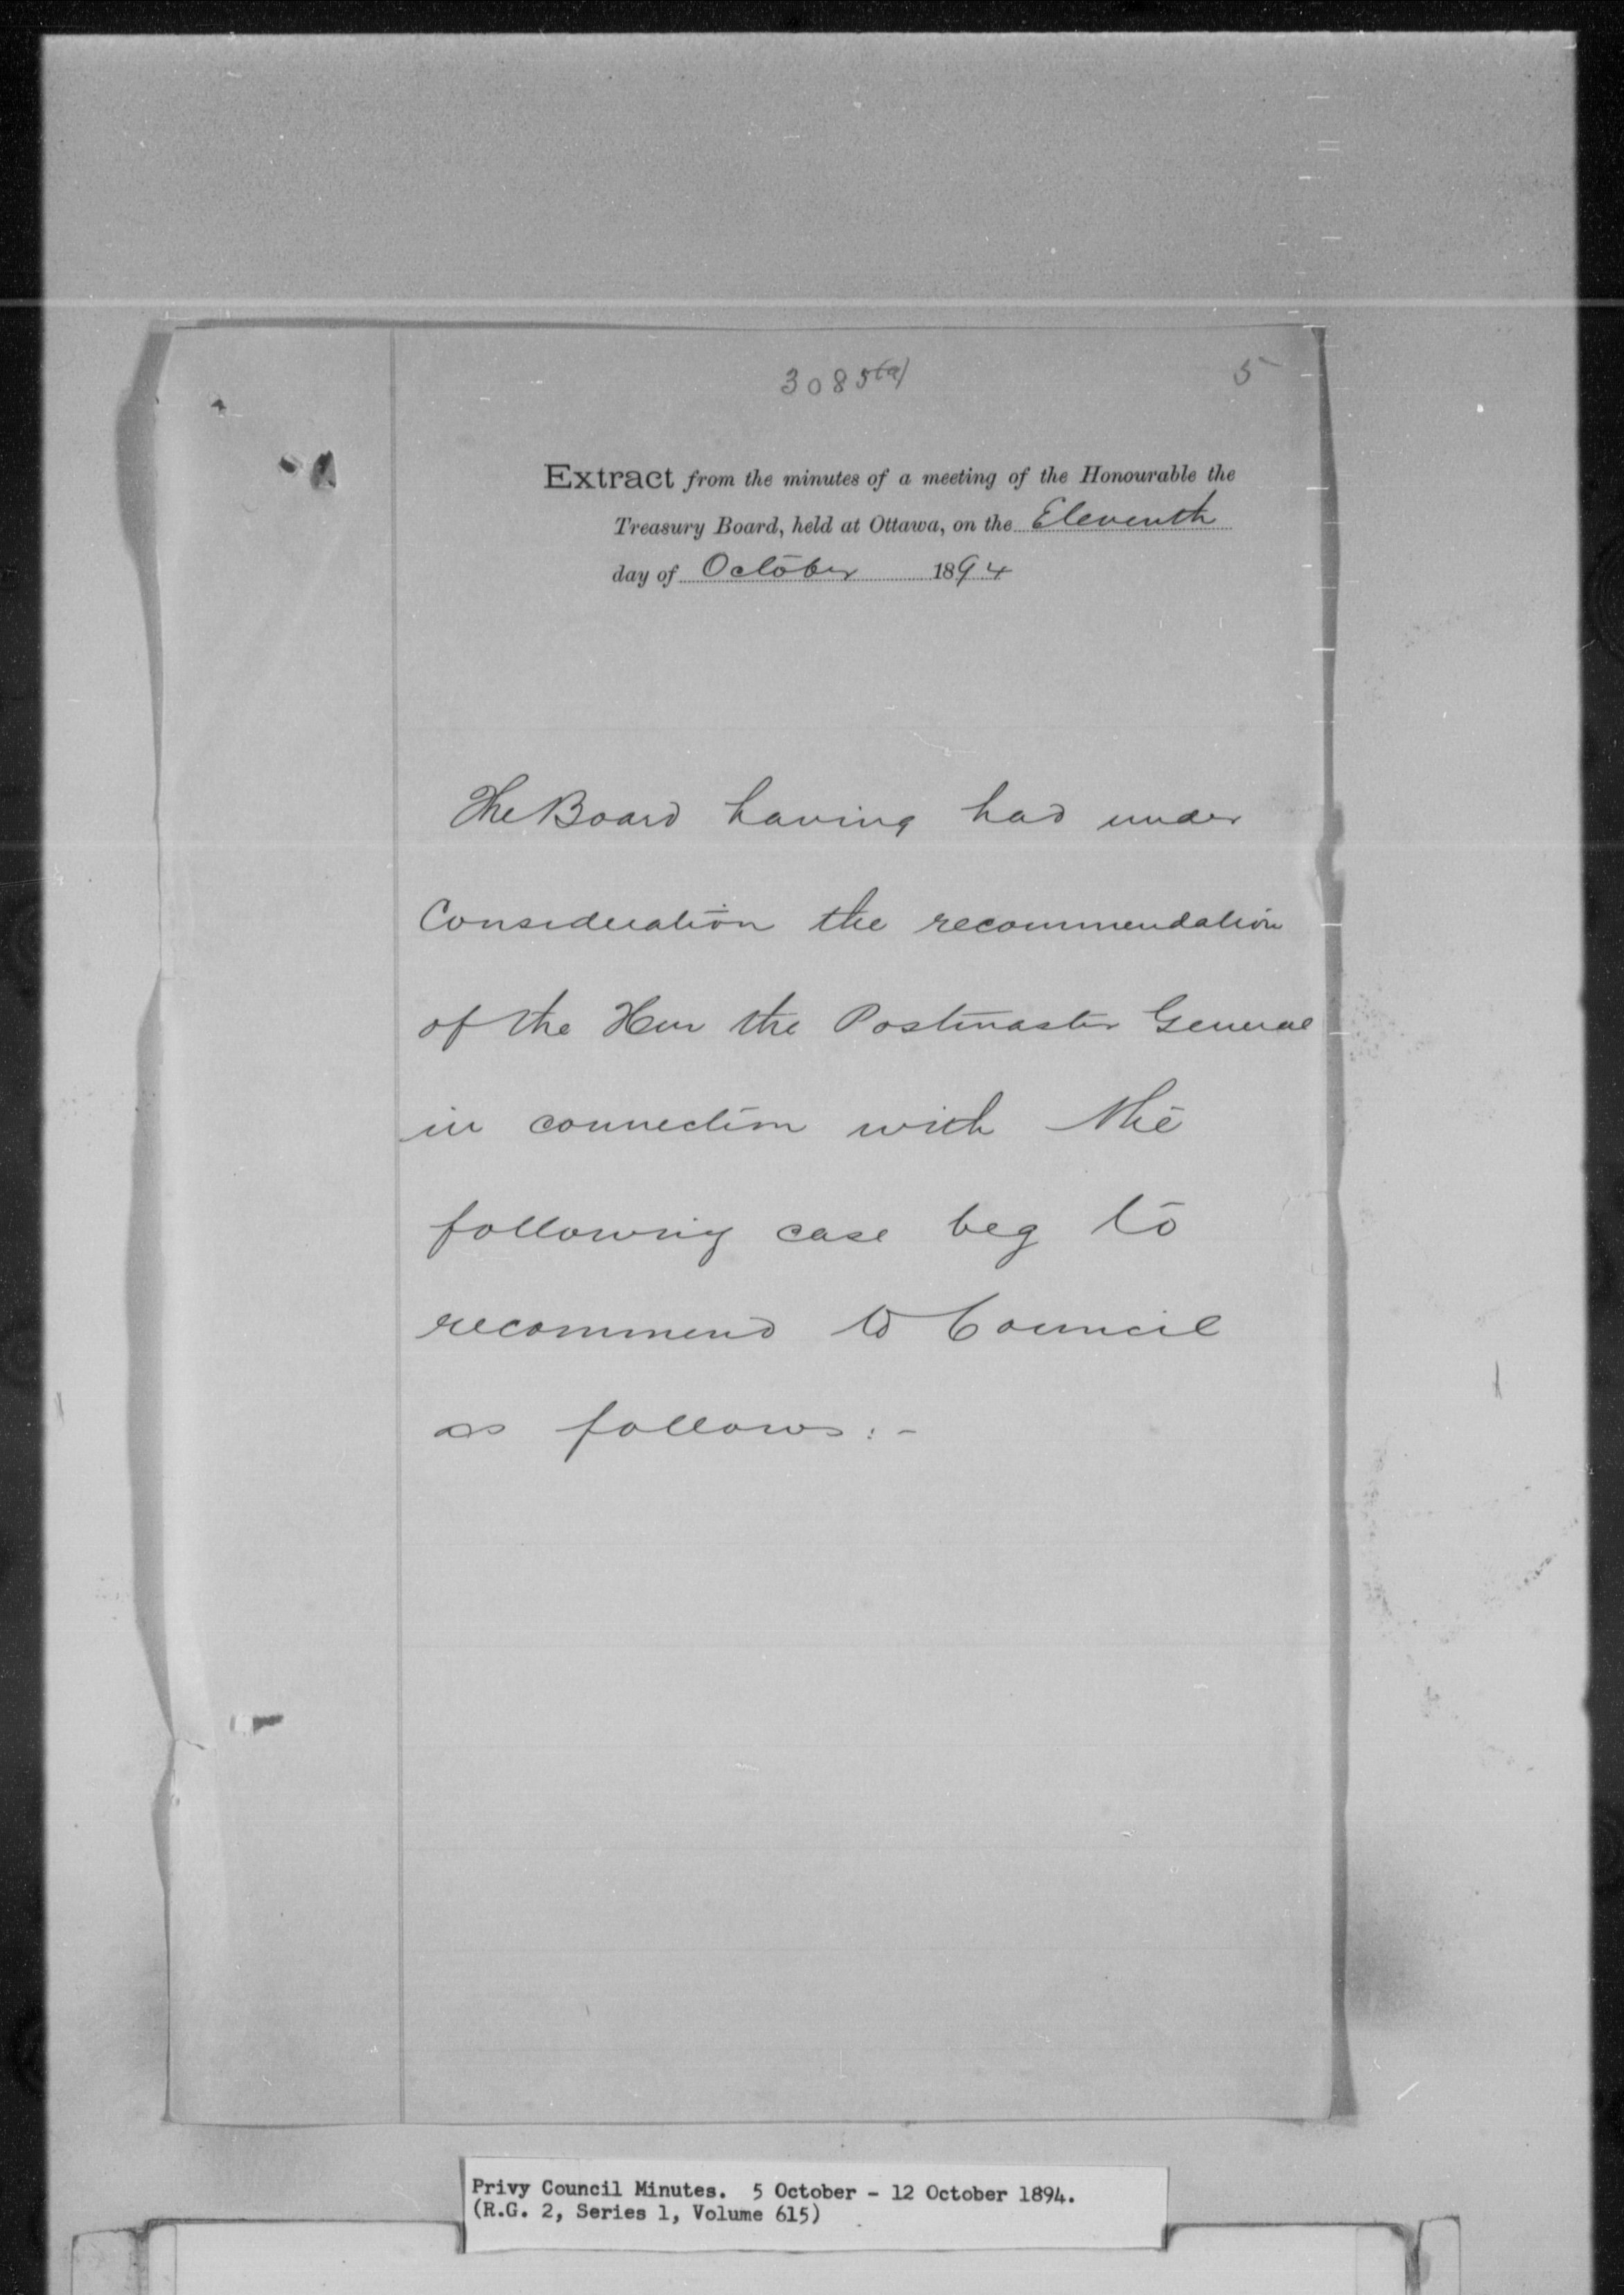 3085(a)
5
Extract from the minutes of a meeting of the Honourable the
Treasury Board, held at Ottawa, on the Eleventh
day of October 1894
The Board having had under
Consideration the recommendation
of the Hon the Postmaster General
in connection with the
following case beg to
recommend to Council
as follows:-
Privy Council Minutes. 5 October - 12 October 1894.
(R.G. 2, Series 1, Volume 615)